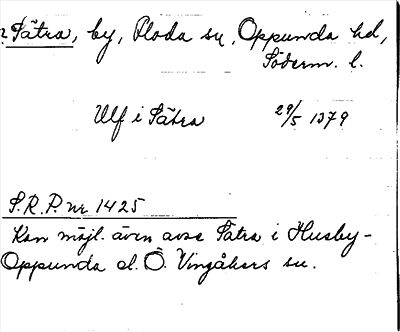 Sätra, by, Floda sn, Oppunda hd,
Söderm. l.
Ulf i Sätra 29/5 1379
S.R.P. nr 1425
Kan möjl. även avse Sätra i Husby-
Oppunda el. Ö. Vingåkers sn.